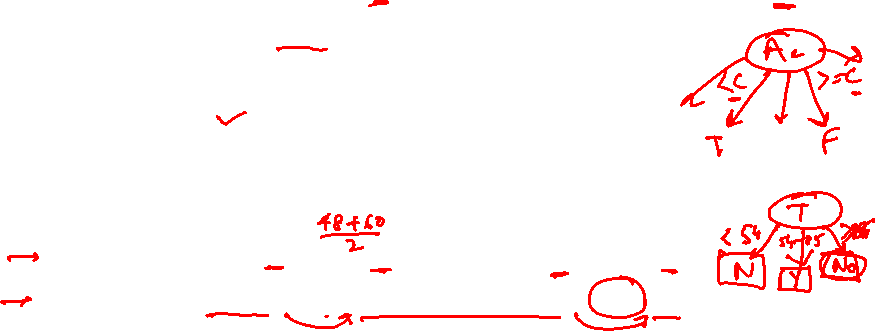 Ac
<C >=C
T F
48+60
2
T
<54 54-85
N Y No